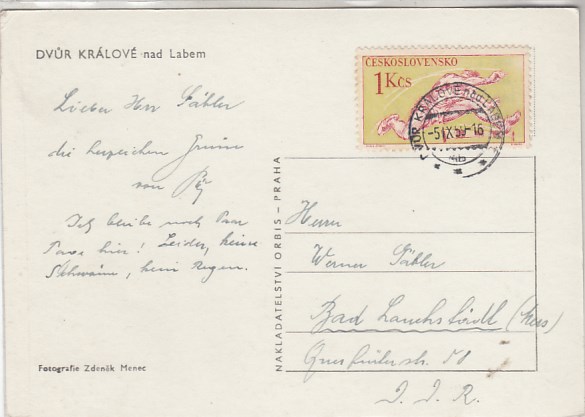 DVŮR KRÁLOVÉ nad Labem
ČESKOSLOVENSKO
1 Kčs
DVŮR KRÁLOVÉ NAD LABEM
-5.IX.59-16
Lieber Herr Gäbler
die herzlichen Grüsse
von
Ich bleibe noch Paar
Tage hier! Leider, keine
kein Regen.
NAKLADATELSTVÍ ORBIS – PRAHA
Herrn
Werner Gäbler
Bad Lauchstädt
str. 50
D. D. R.
Fotografie Zdeněk Menec